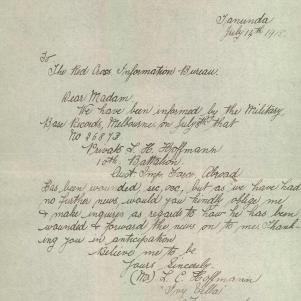 Tanunda
July 14th 1918.
To
The Red Cross Information Bureau.
Dear Madam.
We have been informed by the Military
Base Records, Melbourne on July that
No 2687
Private L. H. Hoffmann
10th Battalion
Aust Imp Force Abroad
Has been wounded, but as we have had
no further news, would you kindly oblige me
& make inquires as regards to how he has been
wounded & forward the news on to me Thank-
ing you in anticipation
Believe me to be
Yours Sincerely.
(Mrs) L. C. Hoffmann
Ivy Villa